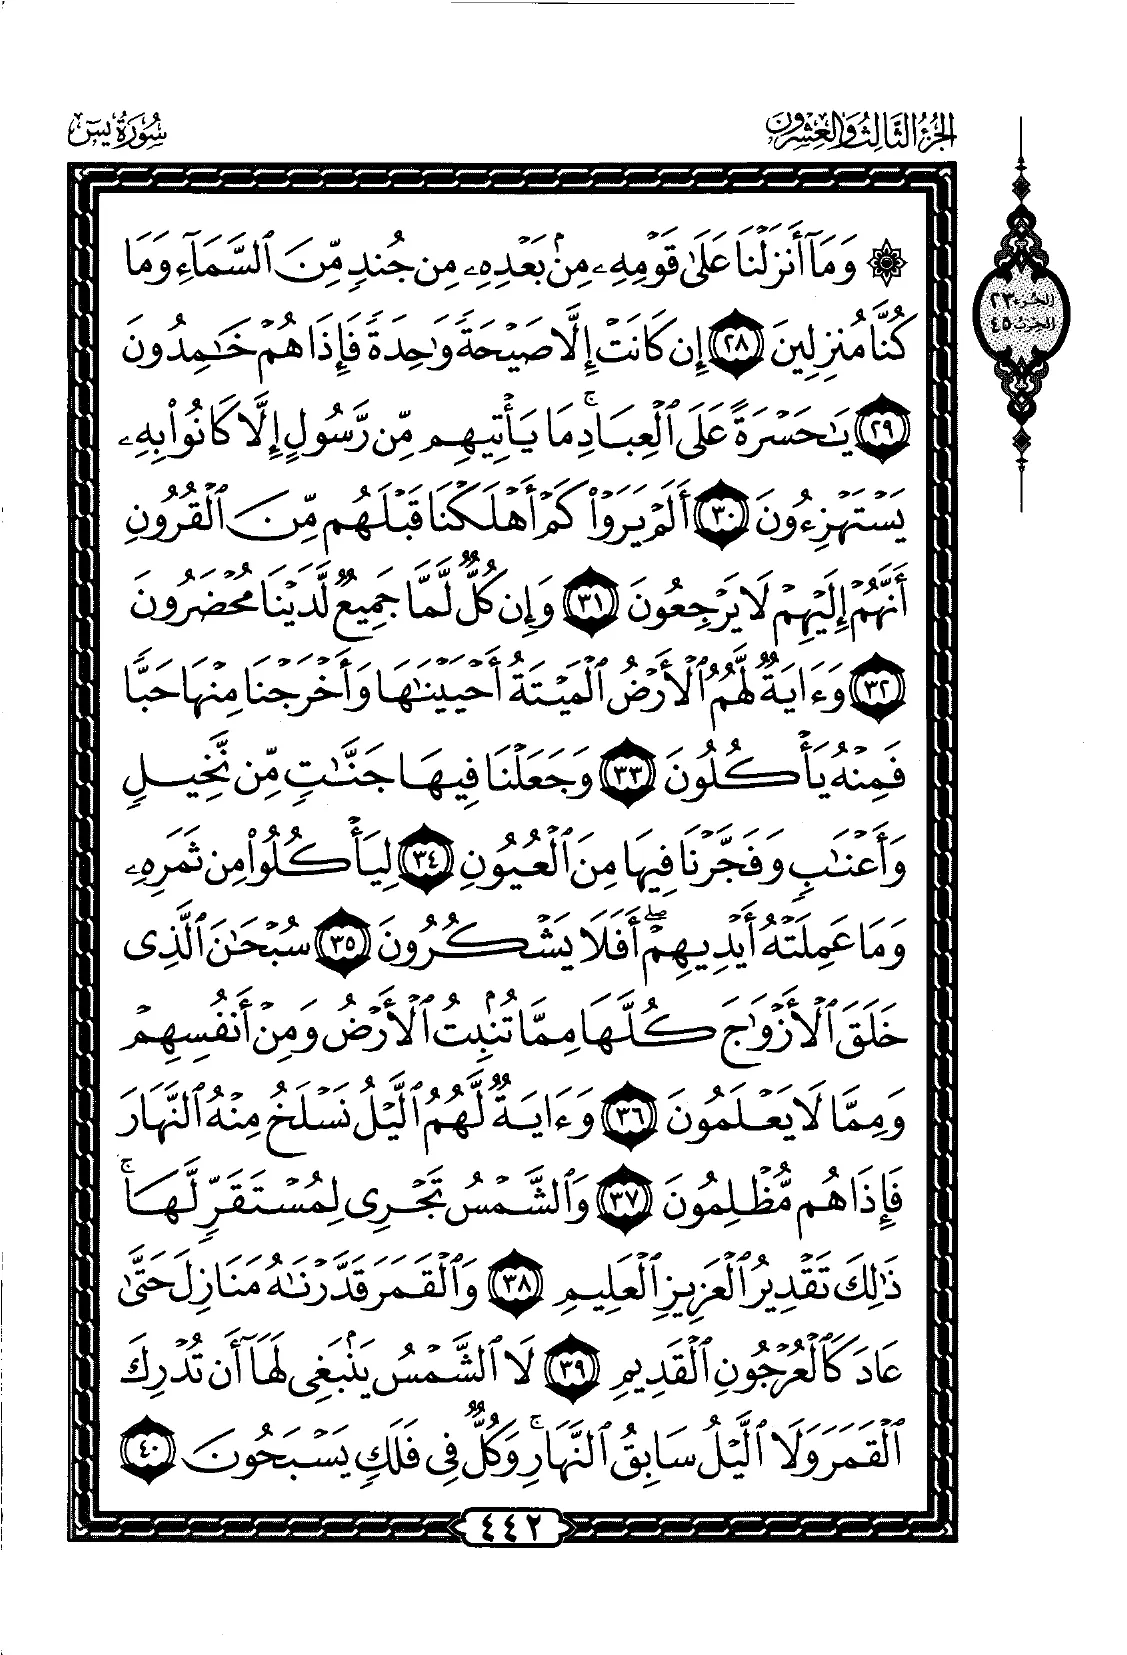 الجزء الثالث والعشرون
سورة يس
الجزء ٢٣
الحزب ٤٥
۞ وَمَآ أَنزَلْنَا عَلَىٰ قَوْمِهِۦ مِنۢ بَعْدِهِۦ مِن جُندٍ مِّنَ ٱلسَّمَآءِ وَمَا
كُنَّا مُنزِلِينَ ٢٨ إِن كَانَتْ إِلَّا صَيْحَةً وَٰحِدَةً فَإِذَا هُمْ خَـٰمِدُونَ
٢٩ يَـٰحَسْرَةً عَلَى ٱلْعِبَادِ ۚ مَا يَأْتِيهِم مِّن رَّسُولٍ إِلَّا كَانُوا۟ بِهِۦ
يَسْتَهْزِءُونَ ٣٠ أَلَمْ يَرَوْا۟ كَمْ أَهْلَكْنَا قَبْلَهُم مِّنَ ٱلْقُرُونِ
أَنَّهُمْ إِلَيْهِمْ لَا يَرْجِعُونَ ٣١ وَإِن كُلٌّ لَّمَّا جَمِيعٌ لَّدَيْنَا مُحْضَرُونَ
٣٢ وَءَايَةٌ لَّهُمُ ٱلْأَرْضُ ٱلْمَيْتَةُ أَحْيَيْنَـٰهَا وَأَخْرَجْنَا مِنْهَا حَبًّا
فَمِنْهُ يَأْكُلُونَ ٣٣ وَجَعَلْنَا فِيهَا جَنَّـٰتٍ مِّن نَّخِيلٍ
وَأَعْنَـٰبٍ وَفَجَّرْنَا فِيهَا مِنَ ٱلْعُيُونِ ٣٤ لِيَأْكُلُوا۟ مِن ثَمَرِهِۦ
وَمَا عَمِلَتْهُ أَيْدِيهِمْ ۖ أَفَلَا يَشْكُرُونَ ٣٥ سُبْحَـٰنَ ٱلَّذِى
خَلَقَ ٱلْأَزْوَٰجَ كُلَّهَا مِمَّا تُنۢبِتُ ٱلْأَرْضُ وَمِنْ أَنفُسِهِمْ
وَمِمَّا لَا يَعْلَمُونَ ٣٦ وَءَايَةٌ لَّهُمُ ٱلَّيْلُ نَسْلَخُ مِنْهُ ٱلنَّهَارَ
فَإِذَا هُم مُّظْلِمُونَ ٣٧ وَٱلشَّمْسُ تَجْرِى لِمُسْتَقَرٍّ لَّهَا ۚ
ذَٰلِكَ تَقْدِيرُ ٱلْعَزِيزِ ٱلْعَلِيمِ ٣٨ وَٱلْقَمَرَ قَدَّرْنَـٰهُ مَنَازِلَ حَتَّىٰ
عَادَ كَٱلْعُرْجُونِ ٱلْقَدِيمِ ٣٩ لَا ٱلشَّمْسُ يَنۢبَغِى لَهَآ أَن تُدْرِكَ
ٱلْقَمَرَ وَلَا ٱلَّيْلُ سَابِقُ ٱلنَّهَارِ ۚ وَكُلٌّ فِى فَلَكٍ يَسْبَحُونَ ٤٠
٤٤٢